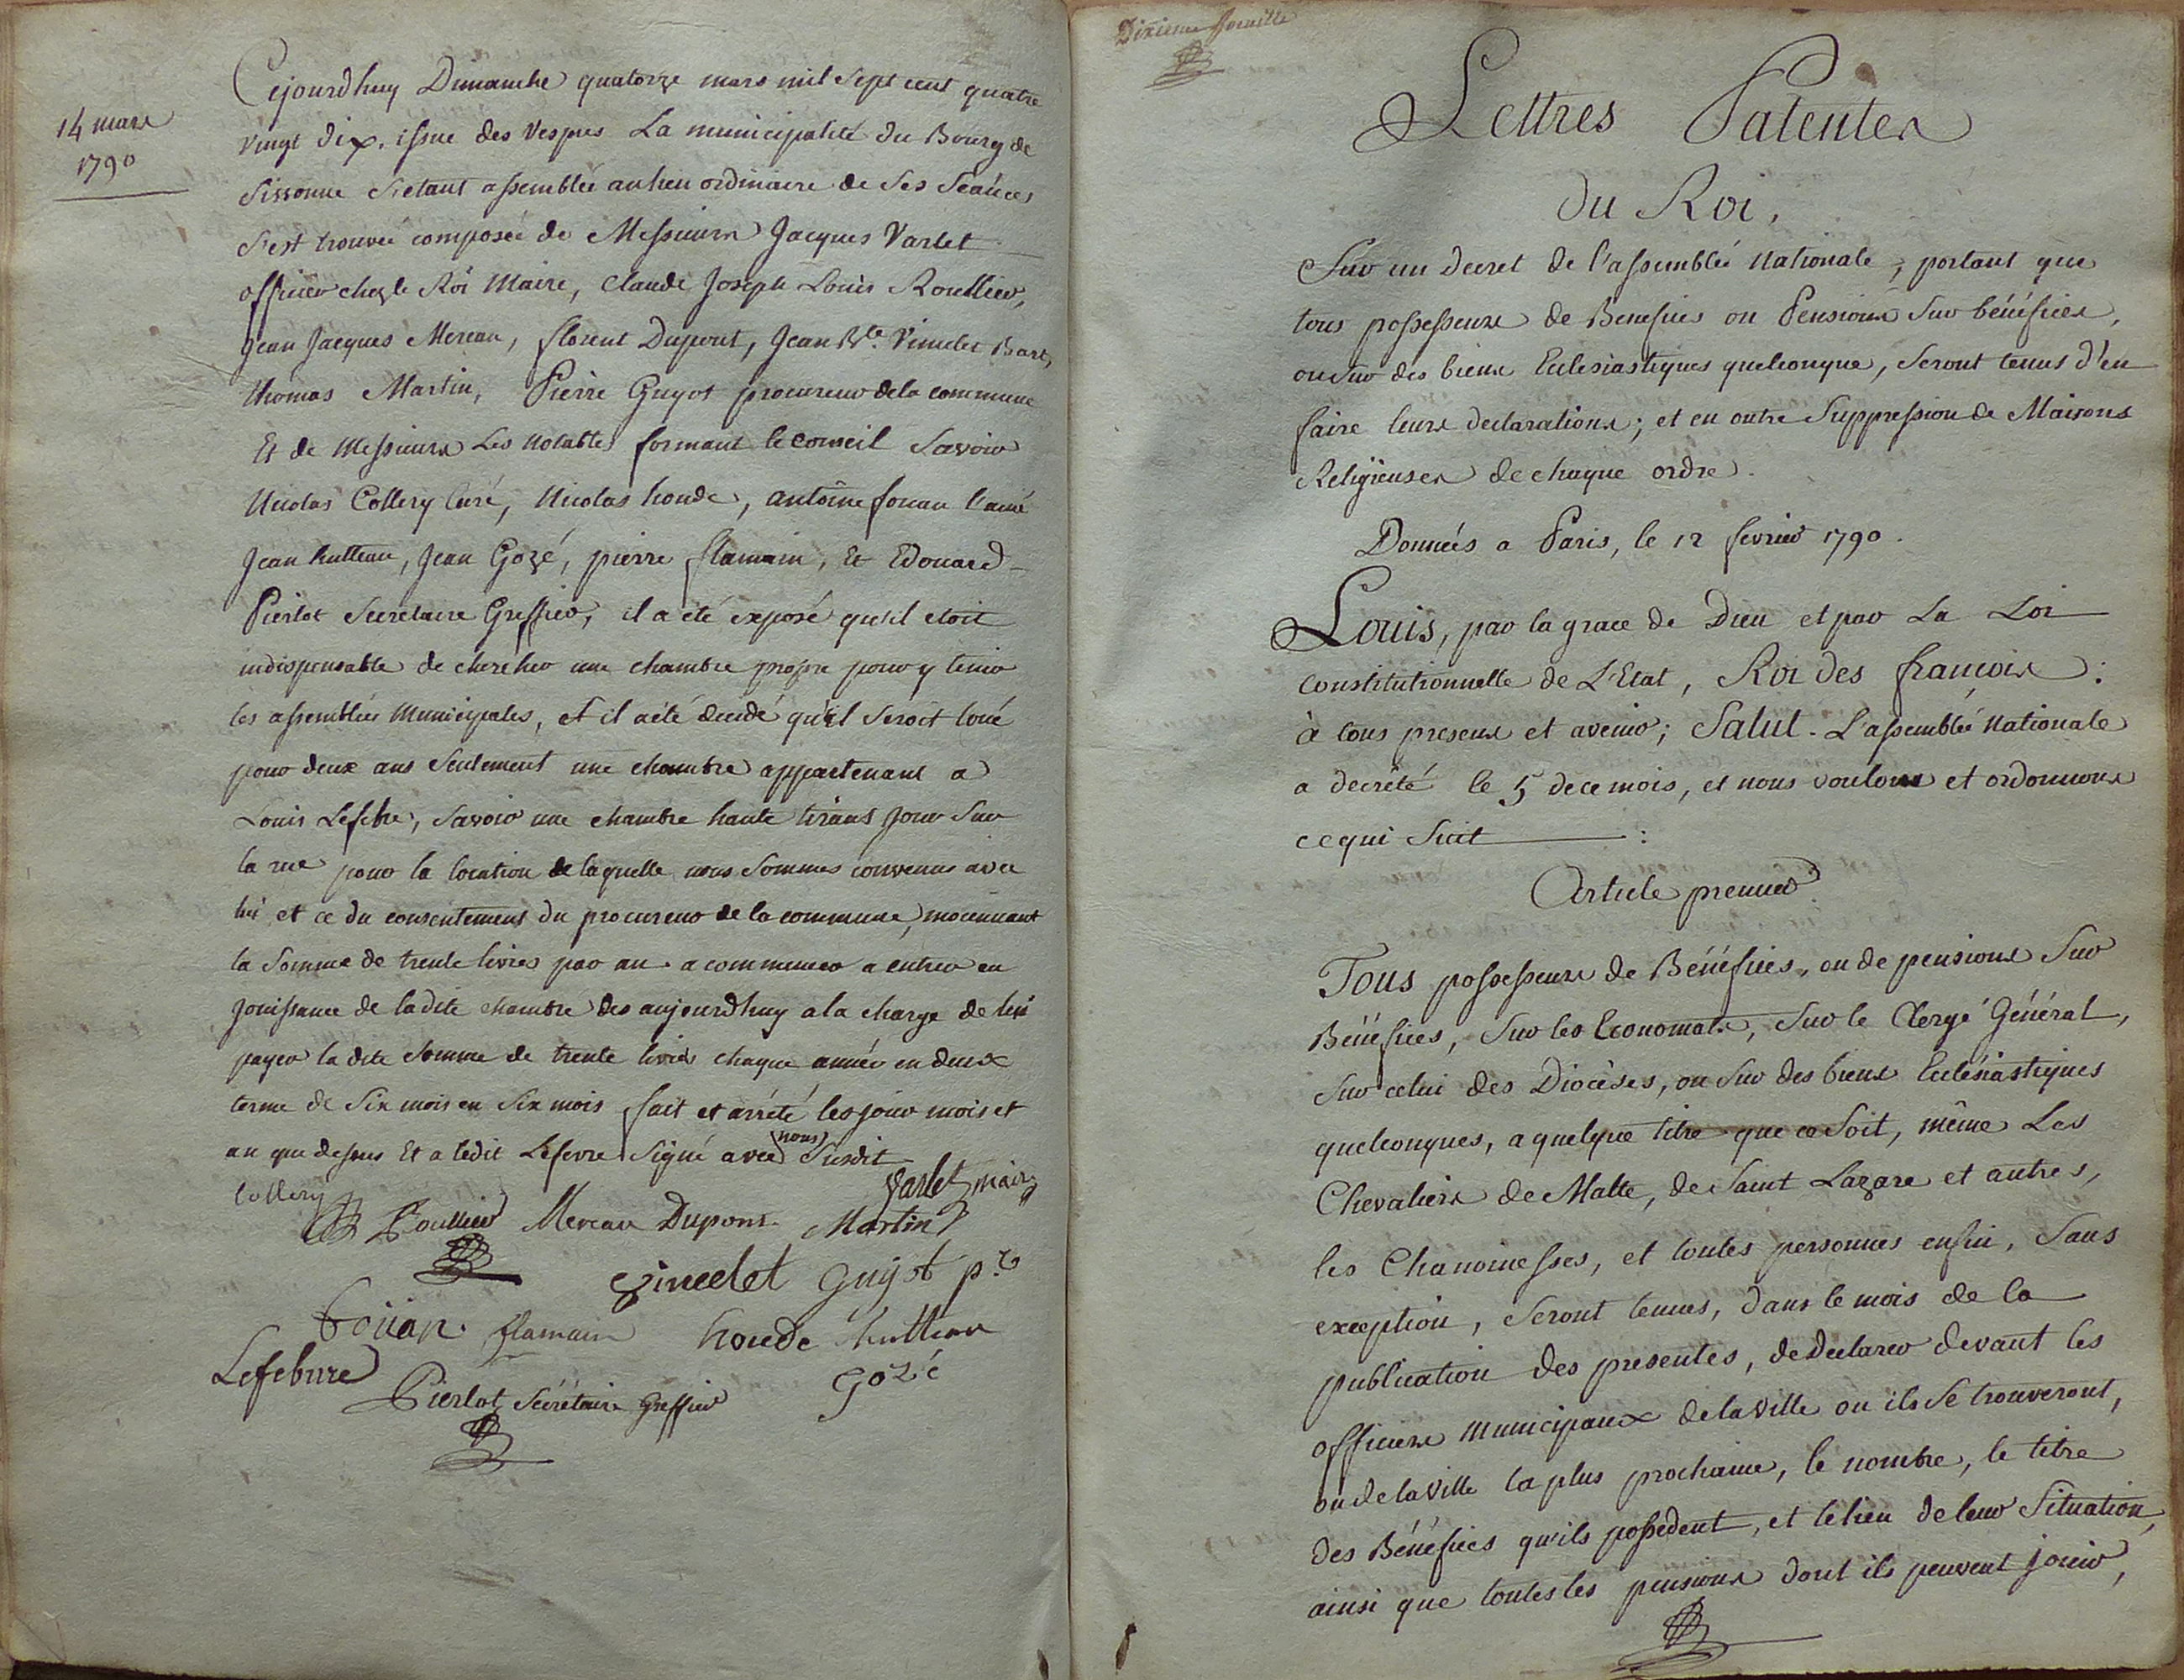 14 mars
1790
Cejourdhuy Dimanche quatorze mars mil sept cent quatre
vingt dix. issue des Vespres La municipalité du Bourg de
Sissonne s'etant assemblée au lieu ordinaire de ses séances
s'est trouvée composée de Messieurs Jacques Varlet
officier chez le Roi Maire, Claude Joseph Louis Roullier,
Jean Jacques Mereau, florent Dupont, Jean Bte. Vinchet
thomas Martin, Pierre Guyot procureur de la commune
Et de Messieurs Les notables formant le conseil Savoir
Nicolas Collery Curé, Nicolas houde, antoine fouan l'ainé
Jean hutteau, Jean Gozé, pierre flamain, Et Edouard
Pierlot Secretaire Greffier, il a été exposé qu'il etoit
indispensable de chercher une chambre propre pour y tenir
les assemblées Municipales, et il a été decidé qu'il seroit loué
pour deux ans seulement une chambre appartenant a
Louis Lefebre, savoir une chambre haute tirans jour sur
la rue pour la location de laquelle nous sommes convenus avec
lui et ce du consentement du procureur de la commune, moiennant
la somme de trente livres par an. a commencer a entrer en
jouissance de ladite chambre des aujourdhuy a la charge de lui
payer la dite somme de trente livres chaque année en deux
terme de six mois en six mois fait et arrété les jour mois et
an que dessus Et a ledit Lefevre signé avec nous susdit
Collery Varlet maire
Roullier Mereau Dupont Martin
Guyot pr
fouan. flamain houde hutteau
Lefebvre Gozé
Pierlot Secrétaire Greffier
Dixieme feuille
Lettres Patentes
du Roi,
Sur un decret de l'assemblée Nationale, portant que
tous possesseurs de Benefices ou Pensions sur bénéfices,
ou sur des biens Eclesiastiques quelconque, seront tenus d'en
faire leurs declarations; et en outre Suppression de Maisons
Religieuses de chaque ordre.
Données a Paris, le 12 fevrier 1790.
Louis, par la grace de Dieu et par La Loi
constitutionnelle de L'Etat, Roi des francois:
à tous presens et avenir; Salut. L'assemblée Nationale
a decrété le 5 de ce mois, et nous voulons et ordonnons
ce qui suit :
Article premier
Tous possesseurs de Bénéfices, ou de pensions sur
Bénéfices, sur les Economats, sur le Clergé Général,
sur celui des Diocèses, ou sur des biens Eclésiastiques
quelconques, a quelque titre que ce soit, même Les
Chevaliers de Malte, de Saint Lazare et autres,
les Chanoinesses, et toutes personnes enfin, sans
exception, seront tenus, dans le mois de la
publication des presentes, de declarer devant les
officiers municipaux de la ville ou ils se trouveront,
ou de la ville la plus prochaine, le nombre, le titre
des Bénéfices qu'ils possedent, et le lieu de leur situation,
ainsi que toutes les pensions dont ils peuvent jouir,